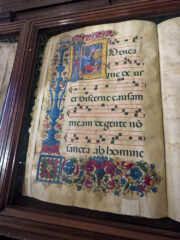 Judica
me deus
et discerne causam
meam de gente nō
sancta ab homine